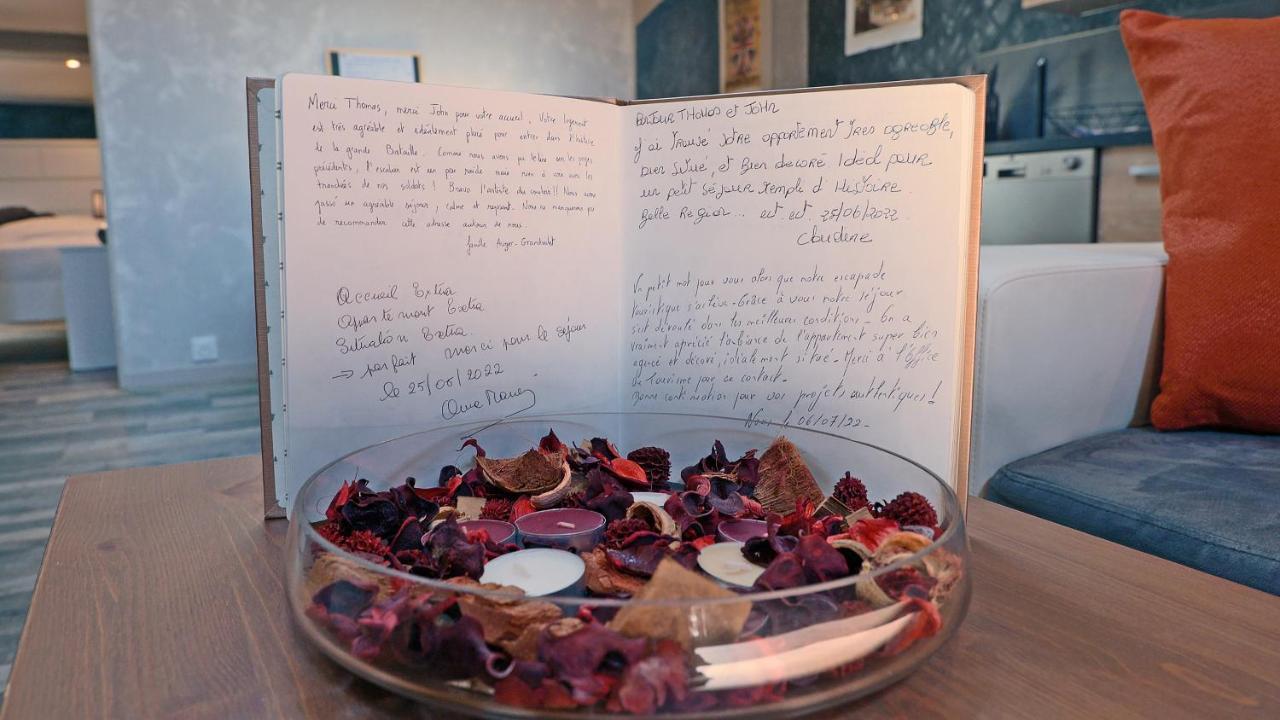 Merci Thomas, merci John pour votre accueil. Votre logement
est très agréable et idéalement placé pour entrer dans l'histoire
de la grande Bataille. Comme nous avons pu le lire sur les pages
précédentes, l'escalier est un peu raide mais rien à voir avec les
tranchées de nos soldats ! Bravo l'artiste du couloir !! Nous avons
passé un agréable séjour, calme et reposant. Nous ne manquerons pas
de recommander cette adresse autour de nous.
famille Auger-
Accueil Extra
Appartement Extra
Situation Extra
→ parfait merci pour le séjour
le 25/06/2022
BonJOUR THOMAS et JOHN
J'ai trouvé votre appartement très agréable,
bien situé, et bien décoré. Idéal pour
un petit séjour rempli d'Histoire.
Belle Région... est est. 25/06/2022
Claudine
Un petit mot pour vous alors que notre escapade
touristique s'achève. Grâce à vous notre séjour
s'est déroulé dans les meilleures conditions. On a
vraiment apprécié l'ambiance de l'appartement super bien
agencé et décoré, idéalement situé. Merci à l'Office
de Tourisme pour ce contact.
Bonne continuation pour vos projets authentiques !
le 06/07/22.